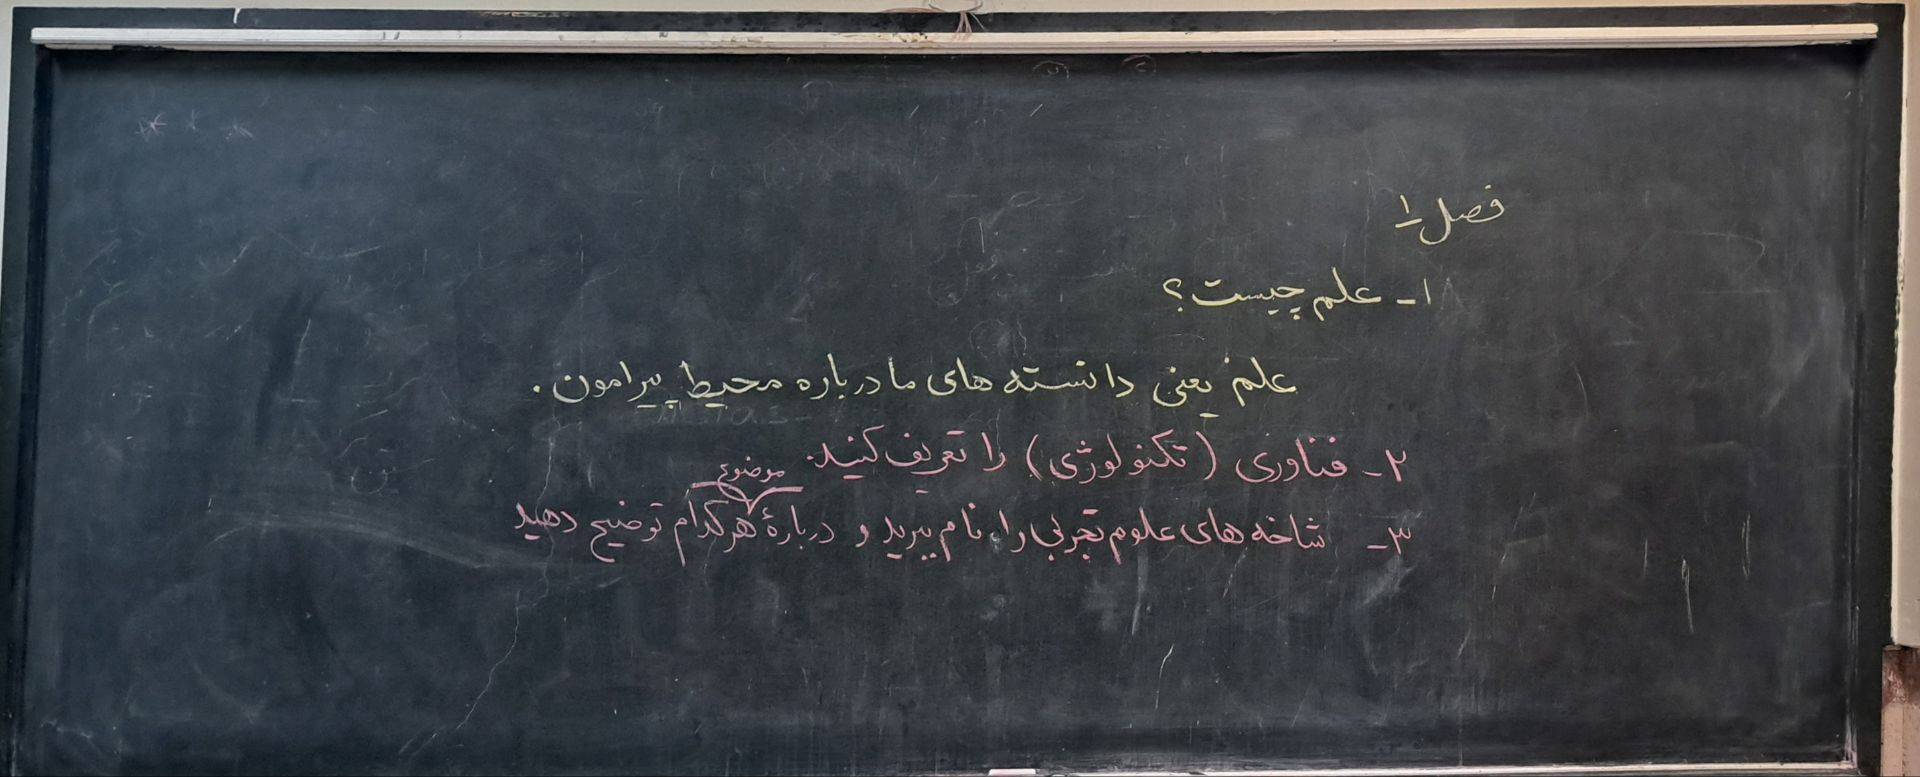 فصل ۱
۱- علم چیست؟
علم یعنی دانسته های ما درباره محیط پیرامون.
۲- فناوری (تکنولوژی) را تعریف کنید.
موضوع
۳- شاخه های علوم تجربی را نام ببرید و دربارهٔ هرکدام توضیح دهید